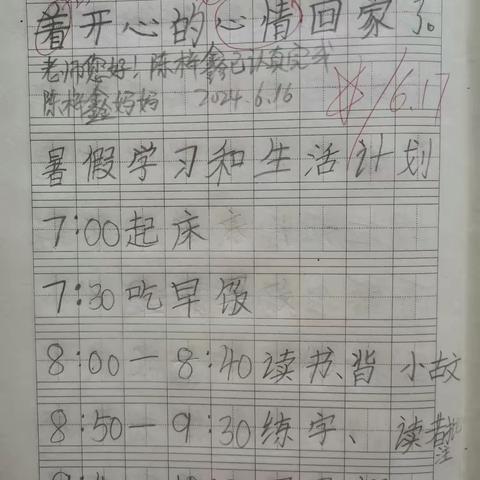 着开心的心情回家了。
老师您好!陈梓鑫已认真完成
陈梓鑫妈妈 2024.6.16
6.17
暑假学习和生活计划
7:00起床
7:30吃早饭
8:00—8:40读书、背小古文
8:50—9:30练字、读书批注